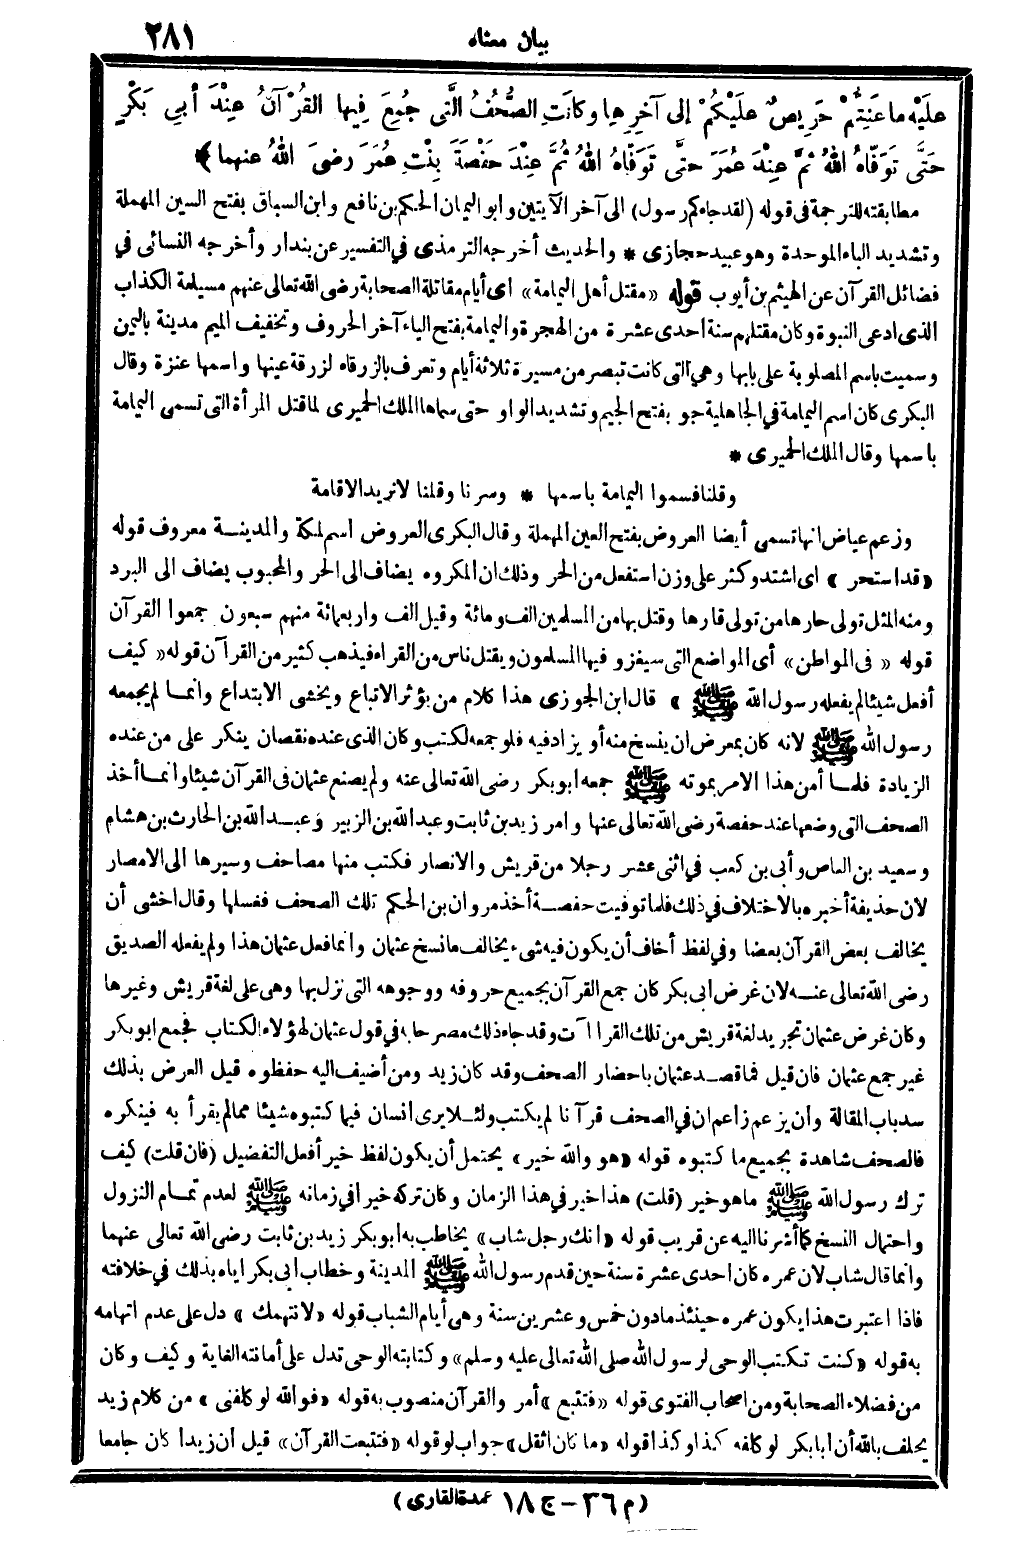 بيان معناه ٢٨١
عليْهِ ما عَنِتُّمْ حَرِيصٌ عليْكُمْ إلى آخِرِها وكانَتِ الصُّحُفُ الَّتِي جُمِعَ فِيها القُرْآنُ عِنْدَ أبي بَكْرٍ
حَتَّى تَوَفَّاهُ اللهُ ثُمَّ عِنْدَ عُمَرَ حتَّى تَوَفَّاهُ اللهُ ثُمَّ عِنْدَ حَفْصَةَ بِنْتِ عُمَرَ رضىَ اللهُ عنهما ﴾
مطابقته للترجمة فى قوله (لقد جاءكم رسول) الى آخر الآيتين وابو اليمان الحكم بن نافع وابن السباق بفتح السين المهملة
وتشديد الباء الموحدة وهو عبيد حجازى * والحديث أخرجه الترمذى في التفسير عن بندار وأخرجه النسائى في
فضائل القرآن عن الهيثم بن أيوب قوله «مقتل أهل اليمامة» اى أيام مقاتلة الصحابة رضى الله تعالى عنهم مسيلمة الكذاب
الذى ادعى النبوة وكان مقتلهم سنة احدى عشرة من الهجرة واليمامة بفتح الياء آخر الحروف وتخفيف الميم مدينة باليمن
وسميت باسم المصلوبة على بابها وهي التى كانت تبصر من مسيرة ثلاثة أيام وتعرف بالزرقاء لزرقة عينها واسمها عنزة وقال
البكرى كان اسم اليمامة في الجاهلية جو بفتح الجيم وتشديد الواو حتى سماها الملك الحميرى لما قتل المرأة التى تسمى اليمامة
باسمها وقال الملك الحميرى *
وقلنا فسموا اليمامة باسمها * وسرنا وقلنا لا نريد الاقامة
وزعم عياض انها تسمى أيضا العروض بفتح العين المهملة وقال البكرى العروض اسم لمكة والمدينة معروف قوله
«قد استحر» اى اشتد وكثر على وزن استفعل من الحر وذلك ان المكروه يضاف الى الحر والمحبوب يضاف الى البرد
ومنه المثل تولى حارها من تولى قارها وقتل بها من المسلمين الف ومائة وقيل الف واربعمائة منهم سبعون جمعوا القرآن
قوله «فى المواطن» أى المواضع التى سيغزو فيها المسلمون ويقتل ناس من القراء فيذهب كثير من القرآن قوله «كيف
أفعل شيئا لم يفعله رسول الله ﷺ» قال ابن الجوزى هذا كلام من يؤثر الاتباع ويخشى الابتداع وانما لم يجمعه
رسول الله ﷺ لانه كان بمعرض ان ينسخ منه أو يزاد فيه فلو جمعه لكتب وكان الذى عنده نقصان ينكر على من عنده
الزيادة فلما أمن هذا الامر بموته ﷺ جمعه ابو بكر رضى الله تعالى عنه ولم يصنع عثمان فى القرآن شيئا وانما أخذ
الصحف التى وضعها عند حفصة رضى الله تعالى عنها وامر زيد بن ثابت وعبد الله بن الزبير وعبد الله بن الحارث بن هشام
وسعيد بن العاص وأبى بن كعب في اثنى عشر رجلا من قريش والانصار فكتب منها مصاحف وسيرها الى الامصار
لان حذيفة أخبره بالاختلاف في ذلك فلما توفيت حفصة أخذ مروان بن الحكم تلك الصحف فغسلها وقال اخشى أن
يخالف بعض القرآن بعضا وفي لفظ أخاف أن يكون فيه شىء يخالف ما نسخ عثمان وانما فعل عثمان هذا ولم يفعله الصديق
رضى الله تعالى عنه لان غرض ابى بكر كان جمع القرآن بجميع حروفه ووجوهه التى نزل بها وهى على لغة قريش وغيرها
وكان غرض عثمان تجريد لغة قريش من تلك القراآت وقد جاء ذلك مصرحا به في قول عثمان لهؤلاء الكتاب فجمع ابو بكر
غير جمع عثمان فان قيل فما قصد عثمان باحضار الصحف وقد كان زيد ومن أضيف اليه حفظوه قيل الغرض بذلك
سد باب المقالة وأن يزعم زاعم ان في الصحف قرآنا لم يكتب ولئلا يرى انسان فيما كتبوه شيئا مما لم يقرأ به فينكره
فالصحف شاهدة بجميع ما كتبوه قوله «هو والله خير» يحتمل أن يكون لفظ خير أفعل التفضيل (فان قلت) كيف
ترك رسول الله ﷺ ما هو خير (قلت) هذا خير في هذا الزمان وكان تركه خيرا في زمانه ﷺ لعدم تمام النزول
واحتمال النسخ كما أشرنا اليه عن قريب قوله «انك رجل شاب» يخاطب به ابو بكر زيد بن ثابت رضى الله تعالى عنهما
وانما قال شاب لان عمره كان احدى عشرة سنة حين قدم رسول الله ﷺ المدينة وخطاب ابى بكر اياه بذلك في خلافته
فاذا اعتبرت هذا يكون عمره حينئذ ما دون خمس وعشرين سنة وهى أيام الشباب قوله «لا نتهمك» دل على عدم اتهامه
به قوله «كنت تكتب الوحى لرسول الله صلى الله تعالى عليه وسلم» وكتابته الوحى تدل على أمانته الغاية وكيف وكان
من فضلاء الصحابة ومن اصحاب الفتوى قوله «فتتبع» أمر والقرآن منصوب به قوله «فوالله لو كلفنى» من كلام زيد
يحلف بالله أن أبا بكر لو كلفه كذا وكذا قوله «ما كان اثقل» جواب لو قوله «فتتبعت القرآن» قيل أن زيدا كان جامعا
(م ٣٦ - ج ١٨ عمدة القارى)